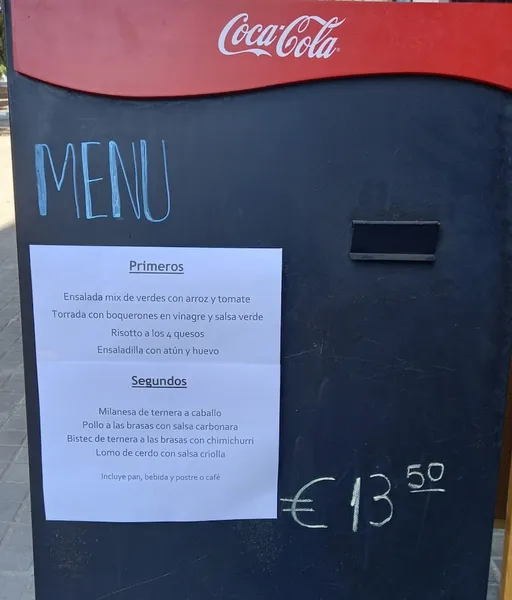 Coca-Cola
MENU
Primeros
Ensalada mix de verdes con arroz y tomate
Torrada con boquerones en vinagre y salsa verde
Risotto a los 4 quesos
Ensaladilla con atún y huevo
Segundos
Milanesa de ternera a caballo
Pollo a las brasas con salsa carbonara
Bistec de ternera a las brasas con chimichurri
Lomo de cerdo con salsa criolla
Incluye pan, bebida y postre o café
€ 13 50